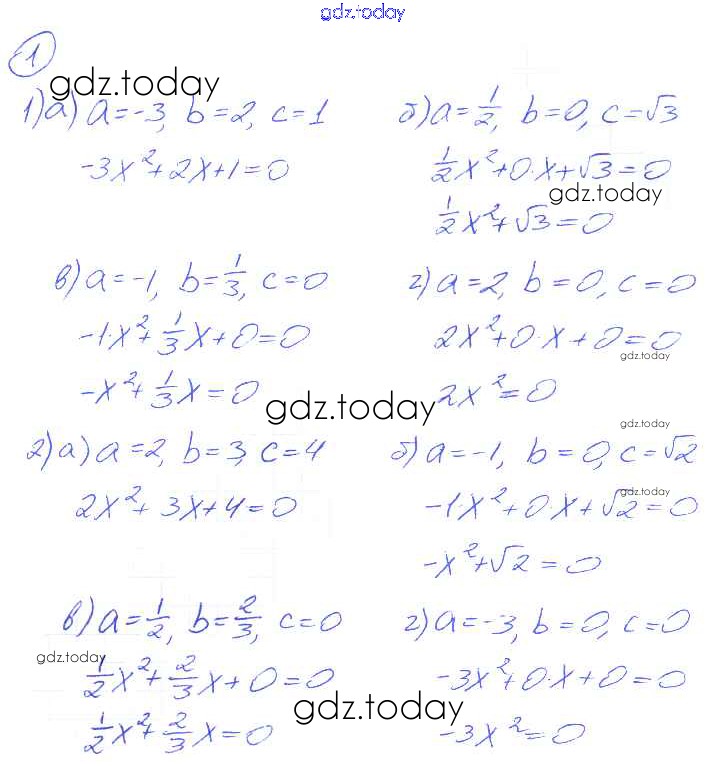 gdz.today
1
gdz.today
1) а) a=-3, b=2, c=1
-3x²+2x+1=0
б) a=1/2, b=0, c=√3
1/2x²+0·x+√3=0
gdz.today
1/2x²+√3=0
в) a=-1, b=1/3, c=0
-1·x²+1/3x+0=0
-x²+1/3x=0
г) a=2, b=0, c=0
2x²+0·x+0=0
gdz.today
2x²=0
gdz.today
2) а) a=2, b=3, c=4
2x²+3x+4=0
gdz.today
б) a=-1, b=0, c=√2
gdz.today
-1·x²+0·x+√2=0
-x²+√2=0
в) a=1/2, b=2/3, c=0
gdz.today
1/2x²+2/3x+0=0
1/2x²+2/3x=0
г) a=-3, b=0, c=0
-3x²+0·x+0=0
gdz.today
-3x²=0